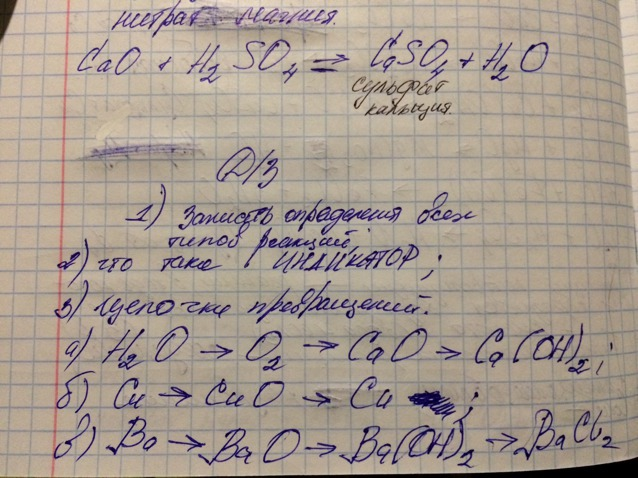 нитрат магния.
CaO + H2SO4 = CaSO4 + H2O
сульфат
кальция.
Д/З
1) Записать определения всех
типов реакций;
2) что такое ИНДИКАТОР;
3) Цепочки превращений.
а) H2O → O2 → CaO → Ca(OH)2;
б) Cu → CuO → Cu ;
в) Ba → BaO → Ba(OH)2 → BaCl2